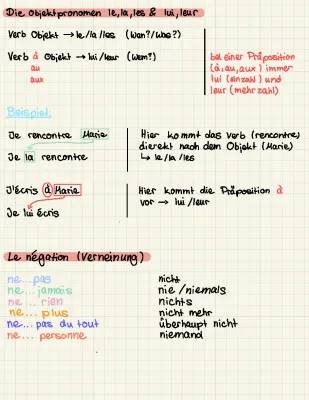 Die Objektpronomen le,la,les & lui,leur
Verb Objekt → le/la/les (Wen?/Was?)
Verb à Objekt → lui/leur (Wem?)
au
aux
bei einer Präposition
(à,au,aux) immer
lui (einzahl) und
leur (mehrzahl)
Beispiel:
Je rencontre Marie
Je la rencontre
Hier kommt das Verb (rencontre)
dierekt nach dem Objekt (Marie)
↳ le/la/les
J'écris à Marie
Je lui écris
Hier kommt die Präposition à
vor → lui/leur
Le négation (Verneinung)
ne...pas nicht
ne...jamais nie/niemals
ne... rien nichts
ne... plus nicht mehr
ne...pas du tout überhaupt nicht
ne... personne niemand